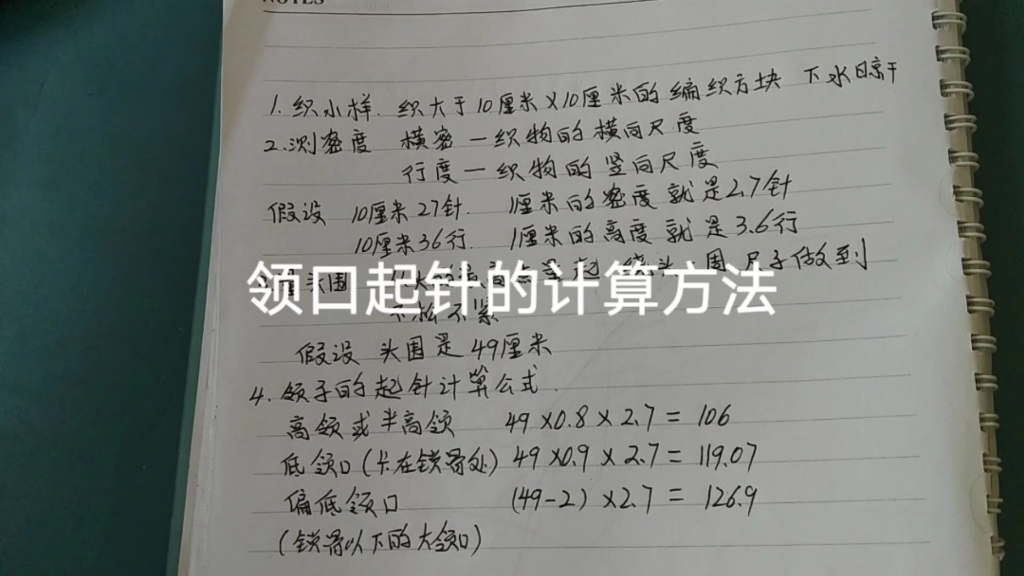 NOTES
1. 织小样. 织大于10厘米×10厘米的编织方块 下水晾干
2. 测密度 横密一织物的横向尺度
行度一织物的竖向尺度
假设 10厘米27针. 1厘米的密度就是2.7针
10厘米36行. 1厘米的高度就是3.6行
头围 尺子做到
领口起针的计算方法
不松不紧
假设 头围是49厘米
4. 领子的起针计算公式.
高领或半高领 49×0.8×2.7=106
低领口(卡在锁骨处) 49×0.9×2.7=119.07
偏低领口 (49-2)×2.7=126.9
(锁骨以下的大领口)